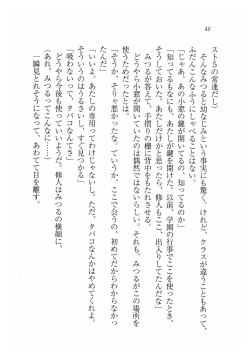 48
ストSの常連だし)
そんなみつると知なじみという事実にも驚く。けれど、クラスが違うこともあって、
ふだんこんなふうにしゃべることはない。
「じゃあ、あの小窓の鍵が開いてるの、知ってるのか」
「知ってるもなにも、あたしが鍵を開けた。以前、学園の行事でここを使ったとき、
こっそりそうしておいた。あたしだけかと思ったら、修人もここ、出入りしてたんだな」
みつるが答えて、手摺りの柵に背中をもたれさせる。
どうやら小窓が開いていたのは偶然ではないらしい。それも、みつるがこの場所を
使うためだったとは。
「そうか、そりゃ悪かったな。ていうか、ここで会うの、初めてだからわからなくて」
「いいよ。あたしの専用ってわけじゃないし。ただ、タバコなんかはやめてくれよ。
そういうのはうるさいし、すぐ見つかる」
「吸わないって、タバコなんてさ」
どうやら今後も使っていいようだ。修人はみつるの横顔に、
(あれ、みつるってこんなに……)
一瞬見とれそうになって、あわてて目を離す。